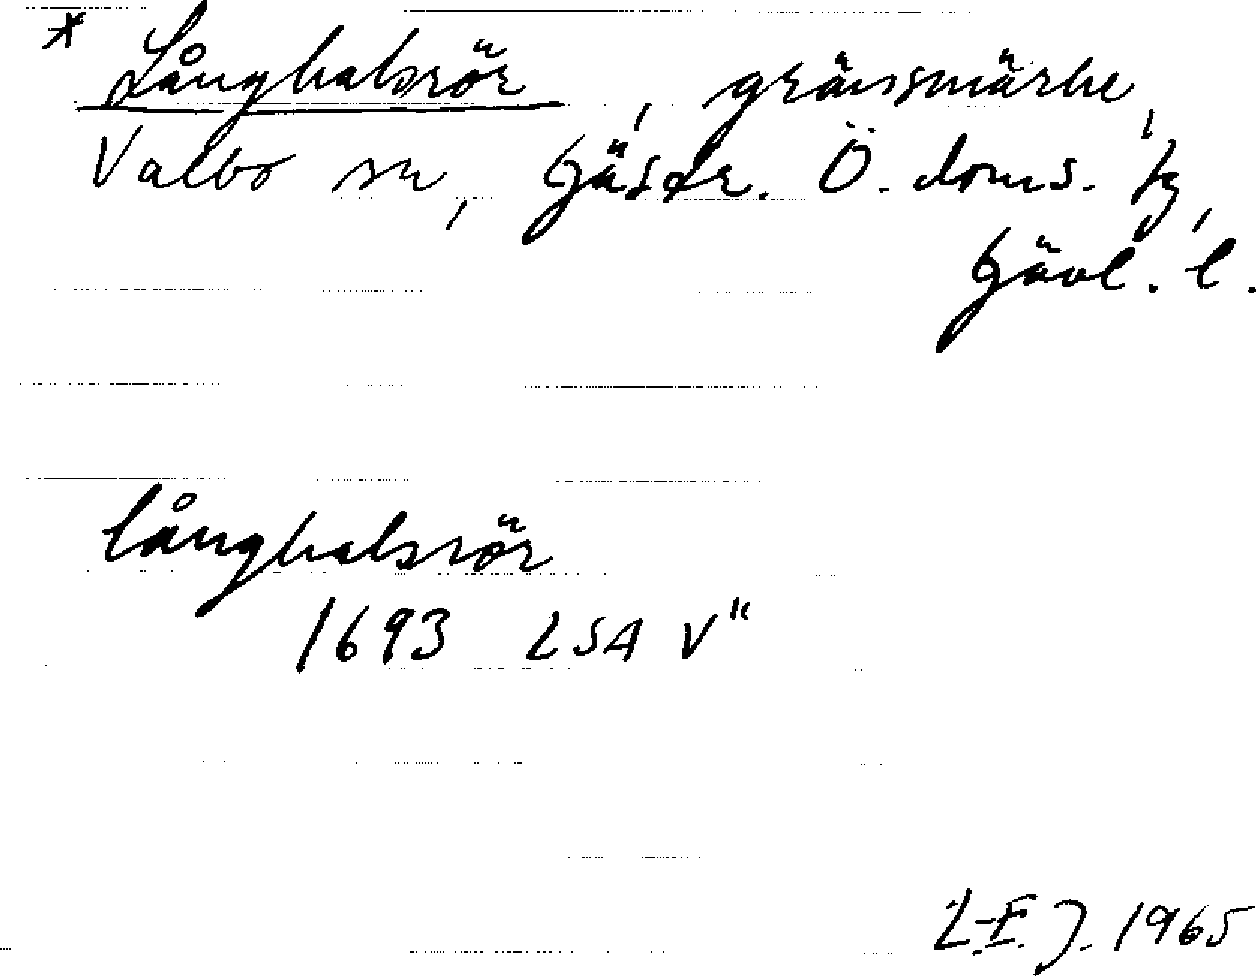 * Långhalsrör, gränsmärke,
Valbo sn, Gästr. Ö. doms. tg,
Gävl. l.
långhalsrör
1693 LSA V"
L.E.J. 1965